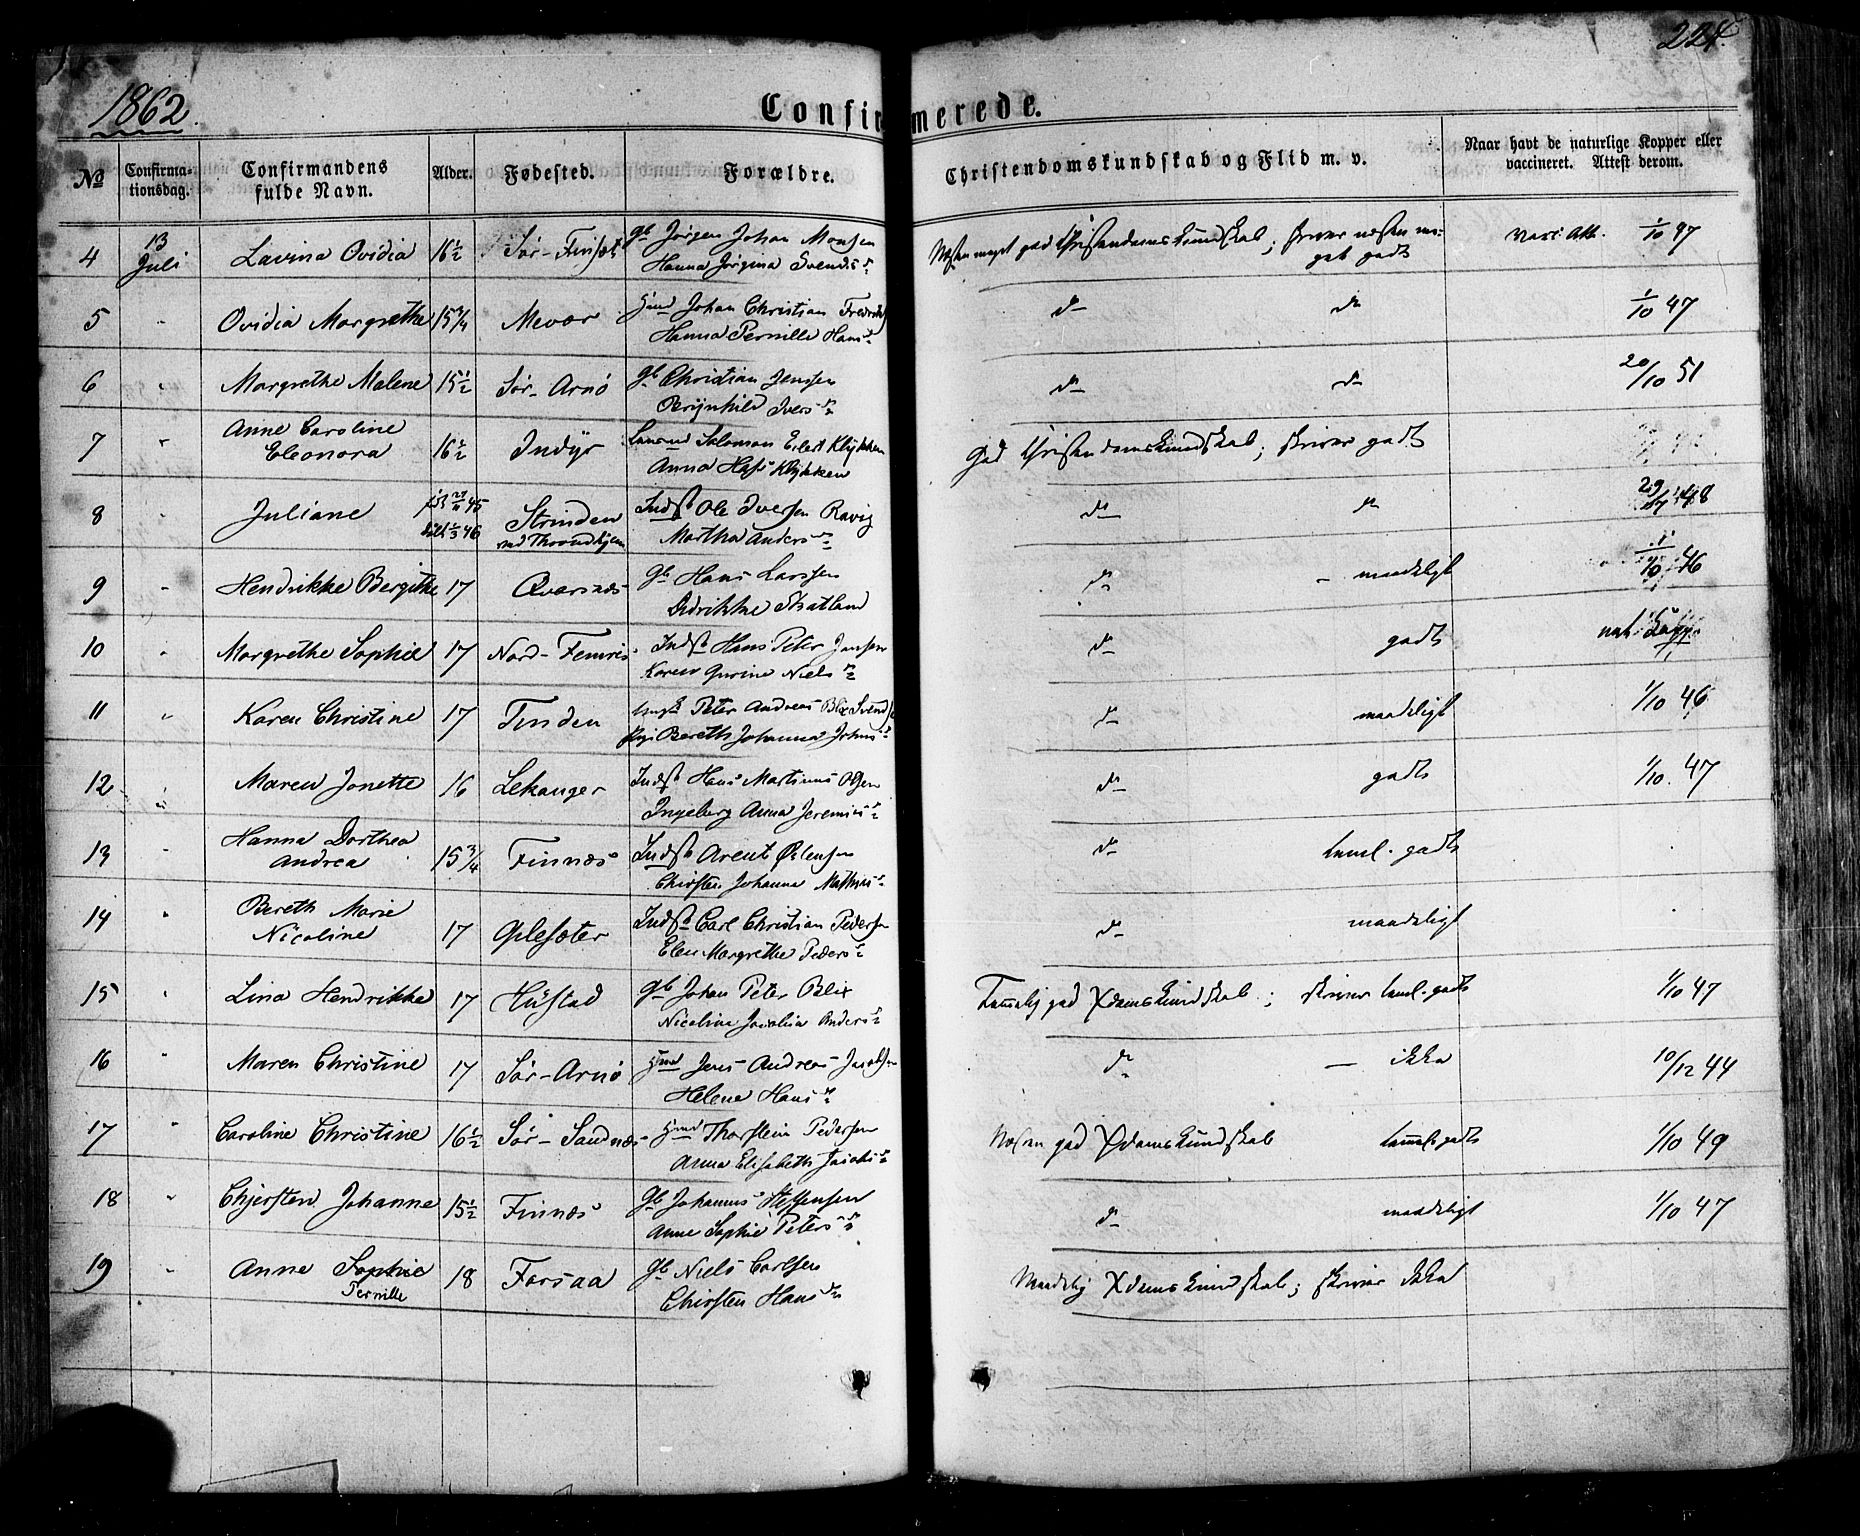 224.
1862.
Confirmerede.
№
Confirmationsdag.
Confirmandens fulde Navn.
Alder.
Fødested.
Forældre.
Christendomskundskab og Flid m. v.
Naar havt de naturlige Kopper eller vaccineret. Attest derom.
4 13 Juli Lavina Ovidia 16½ Sør-Finset Gb Jørgen Johan Monsen
Hanna Jørgina Svends d. Næsten meget god Christendomskundskab; skriver næsten meget godt Vacc. Att. 1/10 47
5 " Ovidia Margrethe 15¾ Mevær Hmd Johan Christian
Hanna Pernille Hans d. do do 1/10 47
6 " Margrethe Malene 15½ Sør-Arnø Gb Christian Jenssen
Brynhild Ivers d. do do 20/10 51
7 " Anne Caroline
Eleonora 16½ Indyr Salomon Eilert Klykken
Anna Klykken God Christendomskundskab; skriver godt
8 " Juliane 46 Strinden
ved Throndhjem Indst Ole Iversen Ravig
Martha Anders d. do do 48
9 " Hendrikke Bergithe 17 Qvarsnæs Gb Hans Larssen
Didrikke Skatland do — maadeligt 1/10 46
10 " Margrethe Sophie 17 Nord-Femris Indst Hans Peter Jensen
Karen Gurine Niels d. do godt nat. Kopp.
11 " Karen Christine 17 Tinden Peter Andreas Blix Svends
Bereth Johanna Johns d. do maadeligt 1/10 46
12 " Maren Jonette 16 Lekanger Indst Hans Martinus Olsen
Ingeborg Anna Jeremias d. do godt 1/10 47
13 " Hanna Dorthea
Andrea 15¾ Finnæs Indst Arent Østensen
Chirsten Johanna Mathias d. do taml. godt
14 " Bereth Marie
Nicoline 17 Gilesæter Indst Carl Christian Pedersen
Elen Margrethe Peders d. do maadeligt
15 " Lina Hendrikke 17 Hustad Gb Johan Peter Blix
Nicoline Jacobia Anders d. Temmelig god Xdomskundskab; skriver taml. godt 1/10 47
16 " Maren Christine 17 Sør-Arnø Hmd Jens Andreas Jacobsen
Helena Hans d. do — ikke 10/12 44
17 " Caroline Christine 16½ Sør-Sandnæs Hmd Thorstein Pedersen
Anna Elisabeth Jacobs d. Næsten god Xdomskundskab taml. godt 1/10 49
18 " Chjersten Johanna 15½ Finnæs Gb Johannes Steffensen
Anne Sophie Peters d. do maadeligt 1/10 47
19 " Anne Sophie
Pernille 18 Forsaa Gb Niels Carlsen
Chirsten Hans d. Maadelig Xdomskundskab; skriver ikke